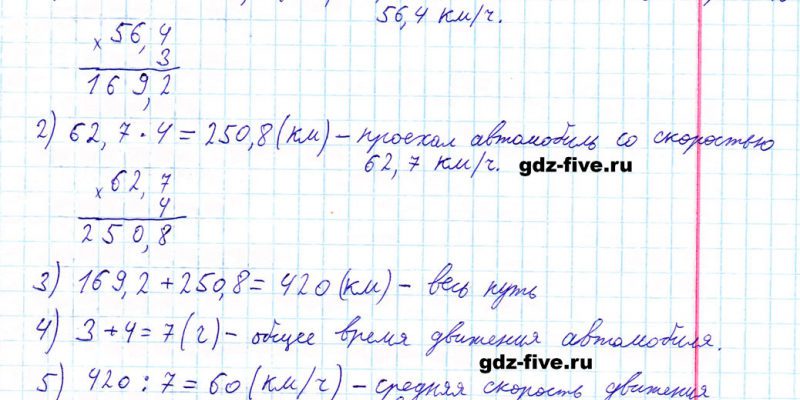 56,4 км/ч.
× 56,4
3
169,2
2) 62,7 · 4 = 250,8 (км) – проехал автомобиль со скоростью
62,7 км/ч.
gdz-five.ru
× 62,7
4
250,8
3) 169,2 + 250,8 = 420 (км) – весь путь
4) 3 + 4 = 7 (ч) – общее время движения автомобиля.
gdz-five.ru
5) 420 : 7 = 60 (км/ч) – средняя скорость движения